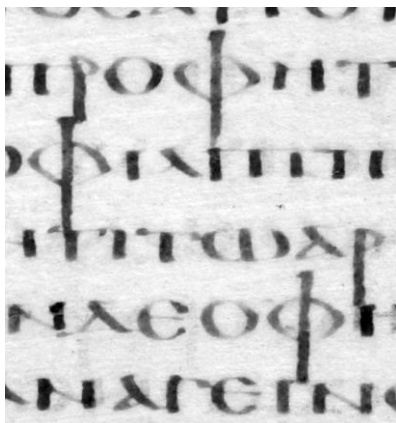 ΠΡΟΦΗΤ
ΟΦΙΛΙΠΠ
ΤΙΤΩΑΡ
ΝΛΕΟΦΗ
ΑΝΑΓΕΙΝ